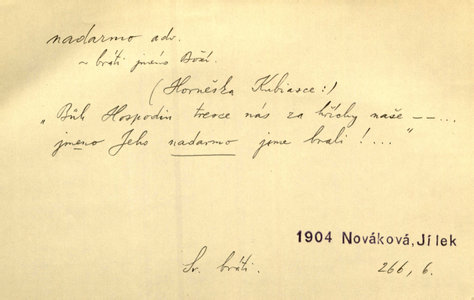 nadarmo adv.
~ bráti jméno Boží.
(Horneška Kubiasce:)
„Bůh Hospodin tresce nás za hříchy naše — — ...
jmeno Jeho nadarmo jsme brali !..."
1904 Nováková, Jílek
Sr. bráti. 266, 6.